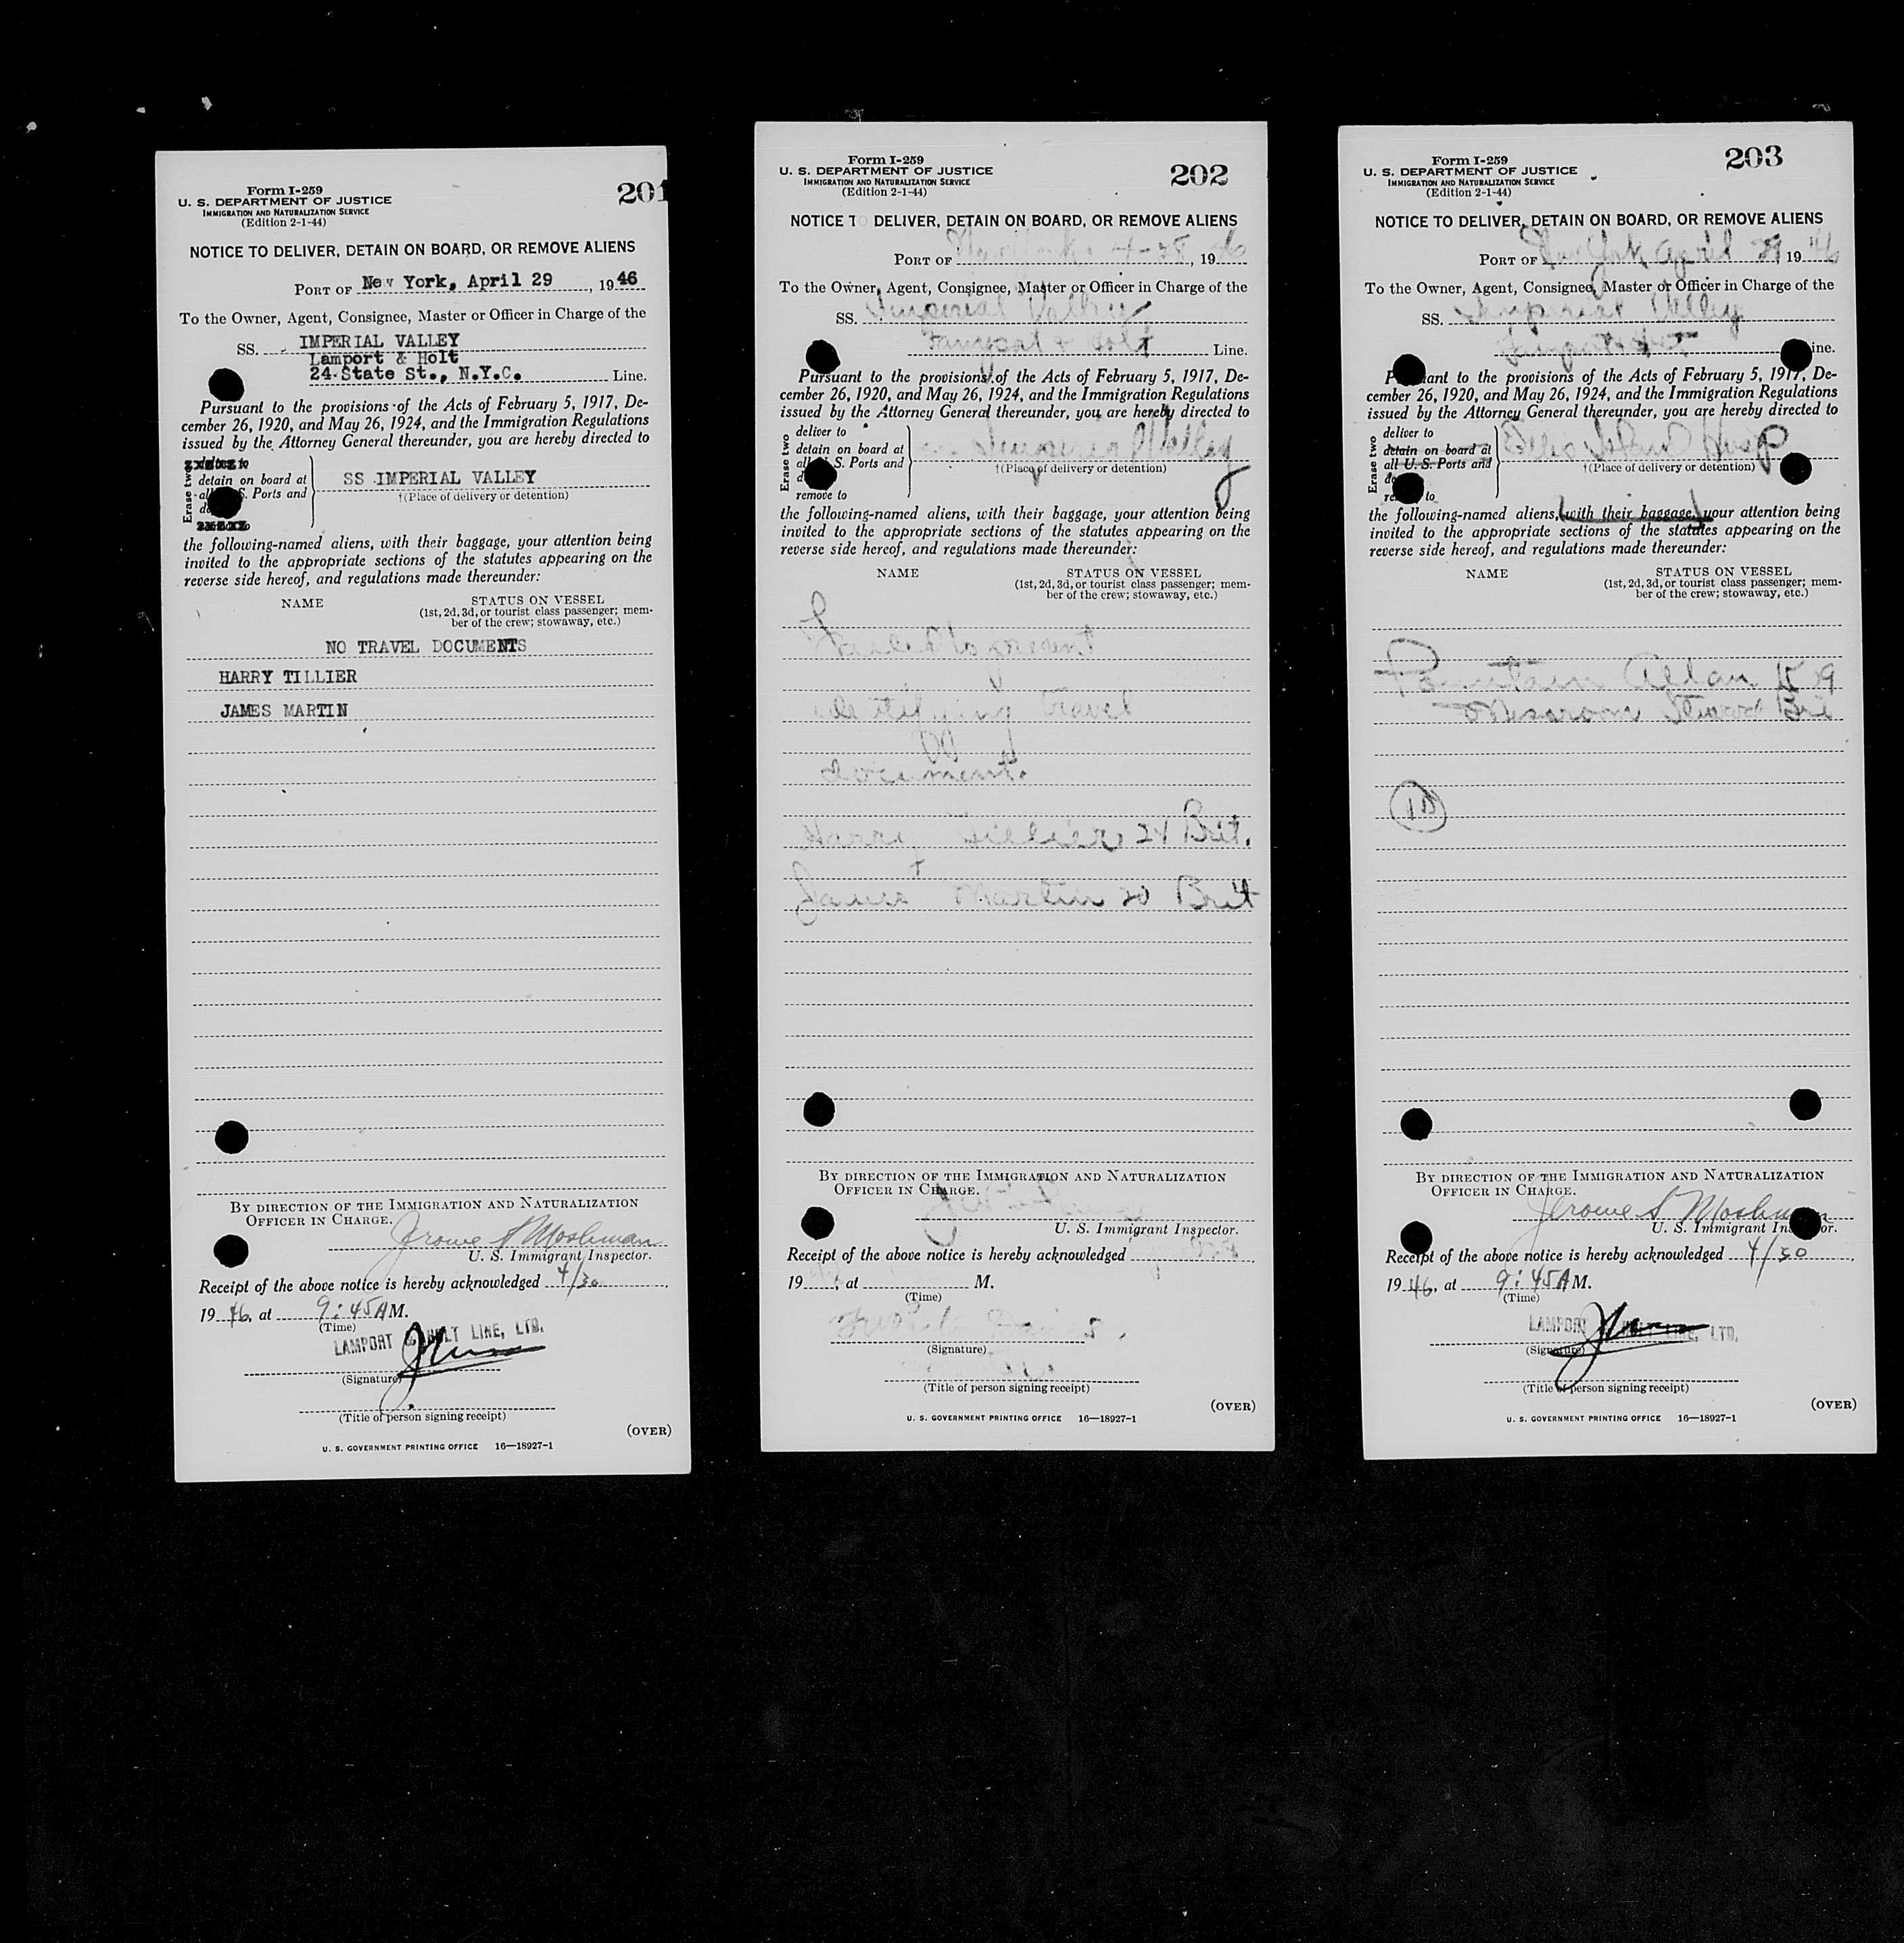 Form I-259
U. S. DEPARTMENT OF JUSTICE
IMMIGRATION AND NATURALIZATION SERVICE
(Edition 2-1-44)
201
NOTICE TO DELIVER, DETAIN ON BOARD, OR REMOVE ALIENS
PORT OF New York, April 29, 1946
To the Owner, Agent, Consignee, Master or Officer in Charge of the
SS. IMPERIAL VALLEY
Lamport & Holt
24 State St., N.Y.C. Line.
Pursuant to the provisions of the Acts of February 5, 1917, De-
cember 26, 1920, and May 26, 1924, and the Immigration Regulations
issued by the Attorney General thereunder, you are hereby directed to
Erase two
detain on board at
S. Ports and
SS IMPERIAL VALLEY
†(Place of delivery or detention)
the following-named aliens, with their baggage, your attention being
invited to the appropriate sections of the statutes appearing on the
reverse side hereof, and regulations made thereunder:
NAME
STATUS ON VESSEL
(1st, 2d, 3d, or tourist class passenger; mem-
ber of the crew; stowaway, etc.)
NO TRAVEL DOCUMENTS
HARRY TILLIER
JAMES MARTIN
BY DIRECTION OF THE IMMIGRATION AND NATURALIZATION
OFFICER IN CHARGE.
Jerome S Moshman
U. S. Immigrant Inspector.
Receipt of the above notice is hereby acknowledged 4/30,
1946, at 9:45 A M.
(Time)
LAMPORT & HOLT LINE, LTD.
(Signature)
(Title of person signing receipt)
(OVER)
U. S. GOVERNMENT PRINTING OFFICE 16—18927-1
Form I-259
U. S. DEPARTMENT OF JUSTICE
IMMIGRATION AND NATURALIZATION SERVICE
(Edition 2-1-44)
202
NOTICE TO DELIVER, DETAIN ON BOARD, OR REMOVE ALIENS
PORT OF New York, 4-28, 1946
To the Owner, Agent, Consignee, Master or Officer in Charge of the
SS. Imperial Valley
Lamport & Holt Line.
Pursuant to the provisions of the Acts of February 5, 1917, De-
cember 26, 1920, and May 26, 1924, and the Immigration Regulations
issued by the Attorney General thereunder, you are hereby directed to
Erase two
deliver to
detain on board at
S. Ports and
remove to
Imperial Valley
†(Place of delivery or detention)
the following-named aliens, with their baggage, your attention being
invited to the appropriate sections of the statutes appearing on the
reverse side hereof, and regulations made thereunder:
NAME
STATUS ON VESSEL
(1st, 2d, 3d, or tourist class passenger; mem-
ber of the crew; stowaway, etc.)
Failed to present
identifying travel
document.
Harry Tillier 24 Brit.
James Martin 20 Brit
BY DIRECTION OF THE IMMIGRATION AND NATURALIZATION
OFFICER IN CHARGE.
U. S. Immigrant Inspector.
Receipt of the above notice is hereby acknowledged
19 , at M.
(Time)
(Signature)
(Title of person signing receipt)
(OVER)
U. S. GOVERNMENT PRINTING OFFICE 16—18927-1
Form I-259
U. S. DEPARTMENT OF JUSTICE
IMMIGRATION AND NATURALIZATION SERVICE
(Edition 2-1-44)
203
NOTICE TO DELIVER, DETAIN ON BOARD, OR REMOVE ALIENS
PORT OF New York April 29 1946
To the Owner, Agent, Consignee, Master or Officer in Charge of the
SS. Imperial Valley
Lamport & Holt
Pursuant to the provisions of the Acts of February 5, 1917, De-
cember 26, 1920, and May 26, 1924, and the Immigration Regulations
issued by the Attorney General thereunder, you are hereby directed to
Erase two
deliver to
detain on board at
all U. S. Ports and
Ellis Island Hosp
†(Place of delivery or detention)
the following-named aliens, with their baggage, your attention being
invited to the appropriate sections of the statutes appearing on the
reverse side hereof, and regulations made thereunder:
NAME
STATUS ON VESSEL
(1st, 2d, 3d, or tourist class passenger; mem-
ber of the crew; stowaway, etc.)
Fountain Allan
Messroom Steward Bri
BY DIRECTION OF THE IMMIGRATION AND NATURALIZATION
OFFICER IN CHARGE.
Jerome S Moshman
U. S. Immigrant Inspector.
Receipt of the above notice is hereby acknowledged 4/30,
1946, at 9:45 A M.
(Time)
LAMPORT & HOLT LINE, LTD.
(Signature)
(Title of person signing receipt)
(OVER)
U. S. GOVERNMENT PRINTING OFFICE 16—18927-1